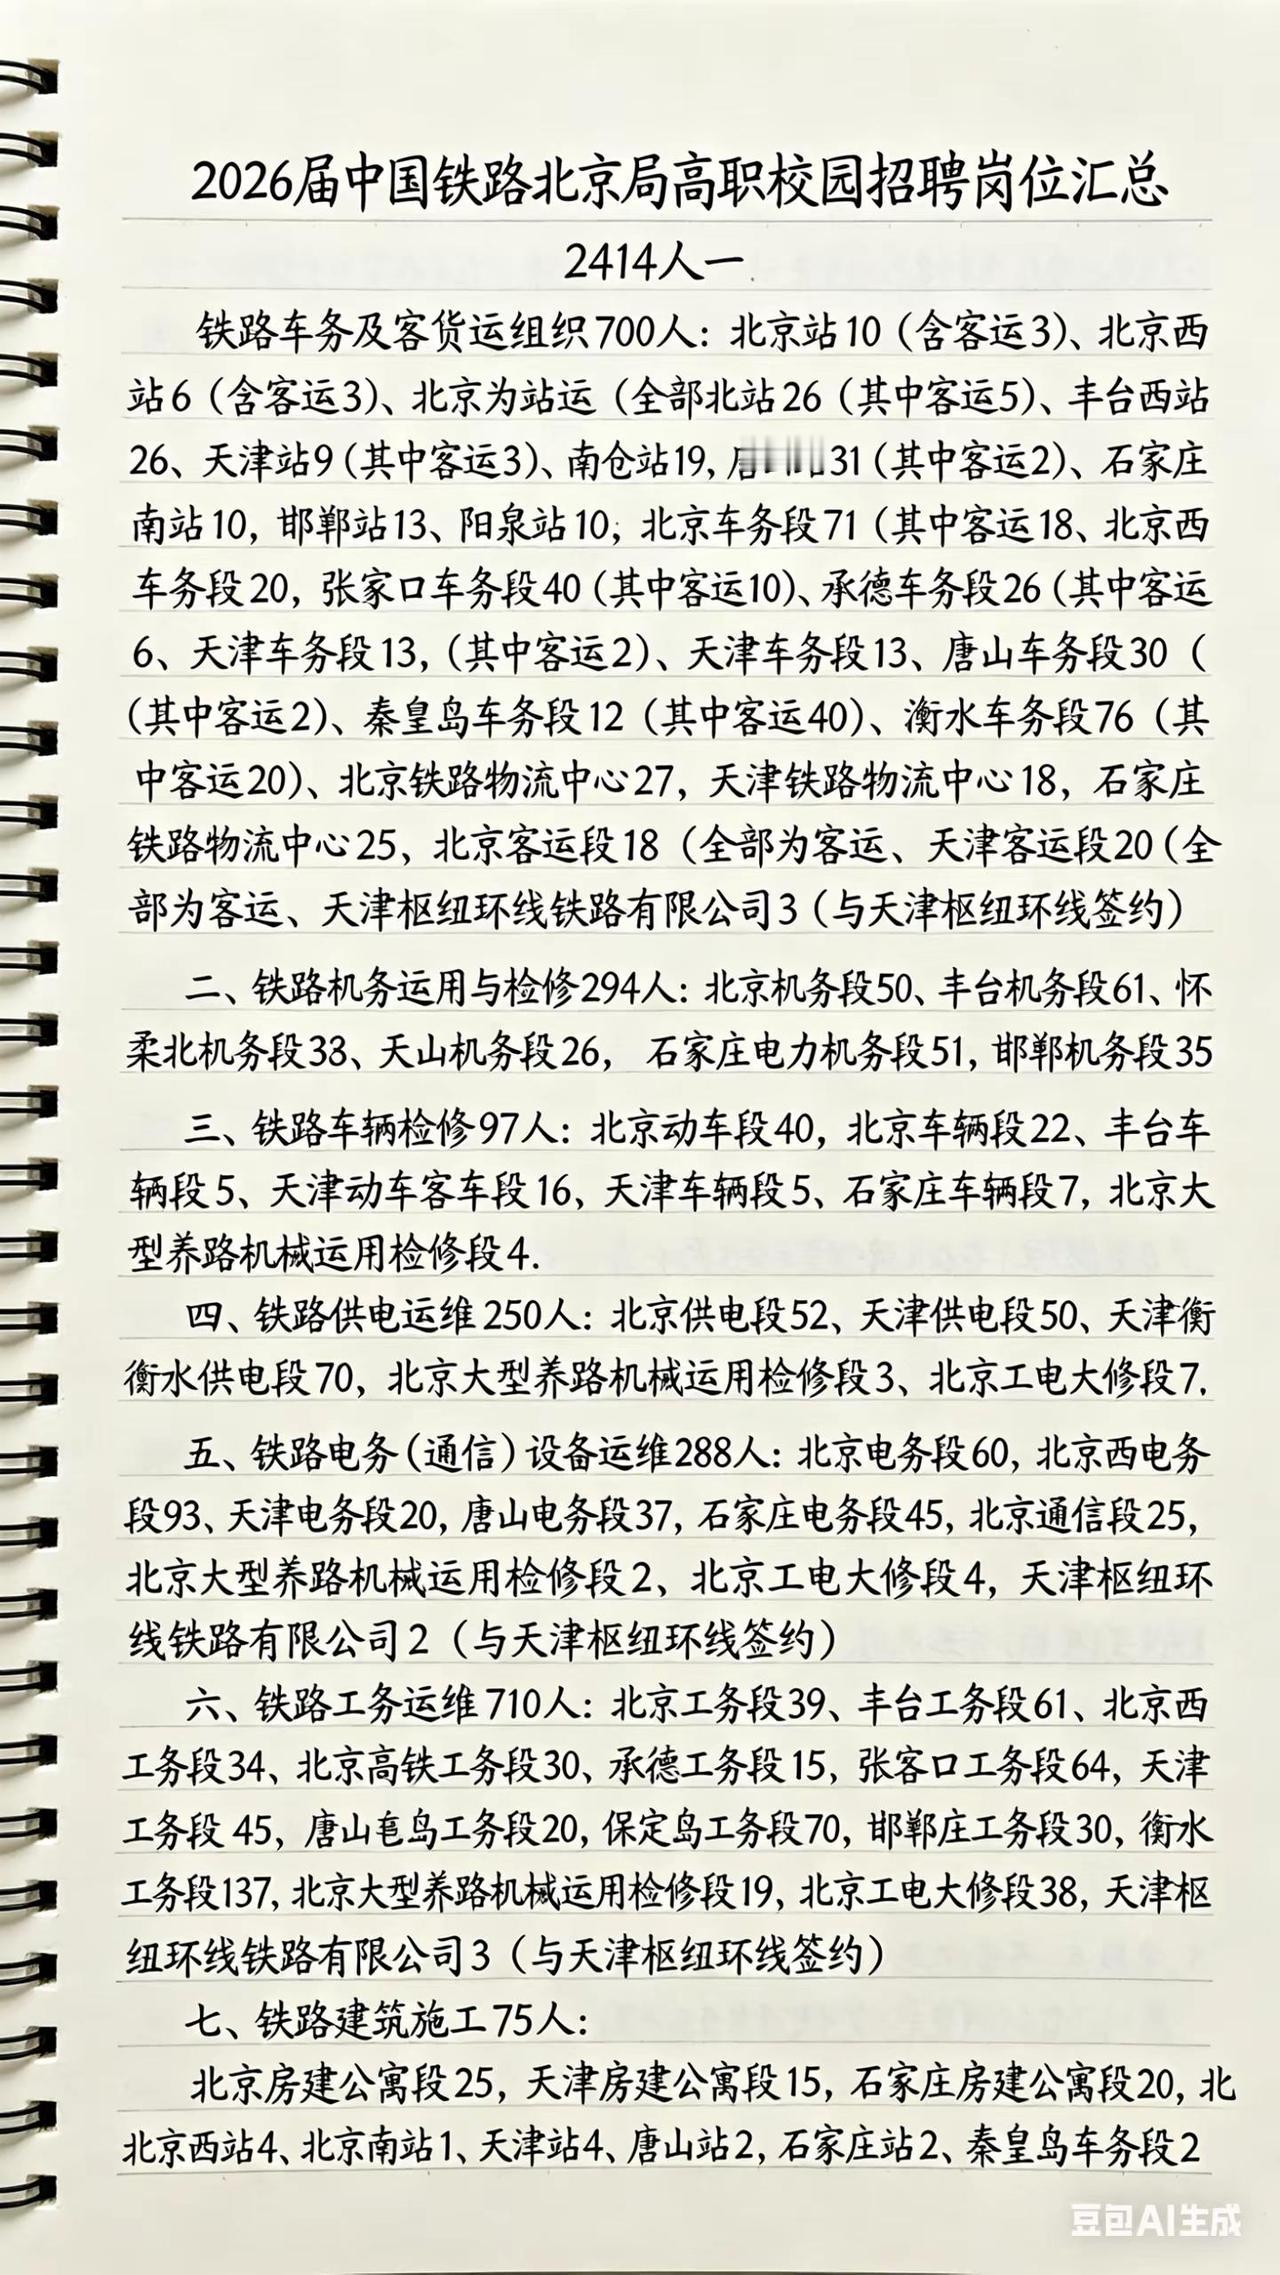 2026届中国铁路北京局高职校园招聘岗位汇总
2414人一
铁路车务及客货运组织700人：北京站10（含客运3）、北京西
站6（含客运3）、北京为站运（全部北站26（其中客运5）、丰台西站
26、天津站9（其中客运3）、南仓站19，31（其中客运2）、石家庄
南站10，邯郸站13、阳泉站10；北京车务段71（其中客运18、北京西
车务段20，张家口车务段40（其中客运10）、承德车务段26（其中客运
6、天津车务段13，（其中客运2）、天津车务段13、唐山车务段30（
（其中客运2）、秦皇岛车务段12（其中客运40）、衡水车务段76（其
中客运20）、北京铁路物流中心27，天津铁路物流中心18，石家庄
铁路物流中心25，北京客运段18（全部为客运、天津客运段20（全
部为客运、天津枢纽环线铁路有限公司3（与天津枢纽环线签约）
二、铁路机务运用与检修294人：北京机务段50、丰台机务段61、怀
柔北机务段33、天山机务段26，石家庄电力机务段51，邯郸机务段35
三、铁路车辆检修97人：北京动车段40，北京车辆段22、丰台车
辆段5、天津动车客车段16，天津车辆段5、石家庄车辆段7，北京大
型养路机械运用检修段4.
四、铁路供电运维250人：北京供电段52、天津供电段50、天津衡
衡水供电段70，北京大型养路机械运用检修段3、北京工电大修段7.
五、铁路电务（通信）设备运维288人：北京电务段60，北京西电务
段93、天津电务段20，唐山电务段37，石家庄电务段45，北京通信段25，
北京大型养路机械运用检修段2，北京工电大修段4，天津枢纽环
线铁路有限公司2（与天津枢纽环线签约）
六、铁路工务运维710人：北京工务段39、丰台工务段61、北京西
工务段34、北京高铁工务段30、承德工务段15，张客口工务段64，天津
工务段45，唐山岛工务段20，保定岛工务段70，邯郸庄工务段30，衡水
工务段137，北京大型养路机械运用检修段19，北京工电大修段38，天津枢
纽环线铁路有限公司3（与天津枢纽环线签约）
七、铁路建筑施工75人：
北京房建公寓段25，天津房建公寓段15，石家庄房建公寓段20，北
北京西站4、北京南站1、天津站4、唐山站2，石家庄站2、秦皇岛车务段2
豆包AI生成